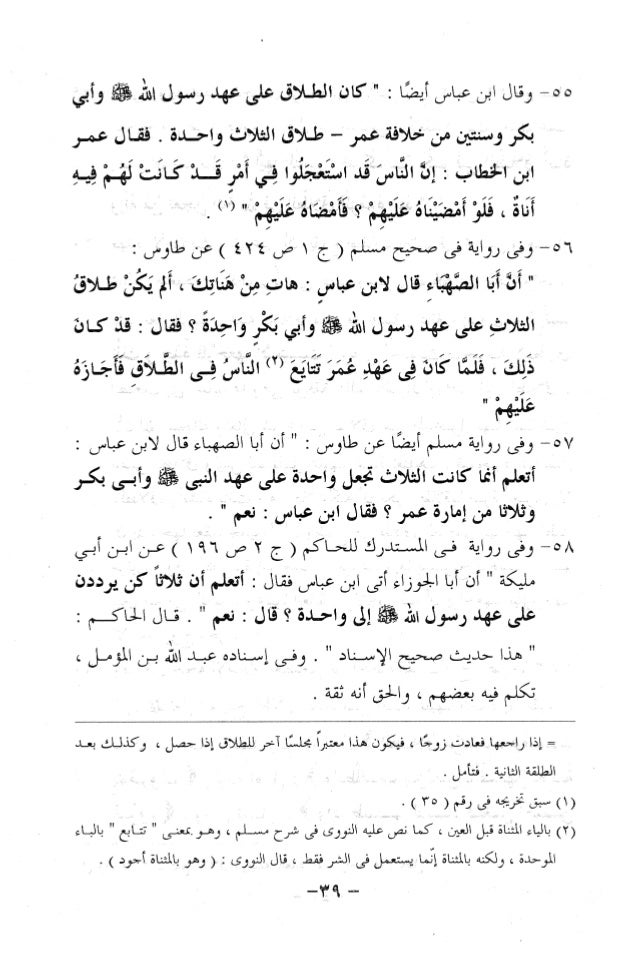 ٥٥- وقال ابن عباس أيضًا : " كان الطلاق على عهد رسول الله ﷺ وأبي
بكر وسنتين من خلافة عمر – طلاق الثلاث واحدة . فقال عمر
ابن الخطاب : إنَّ النَّاسَ قَد اسْتَعْجَلُوا فِي أَمْرٍ قَدْ كَانَتْ لَهُمْ فِيهِ
أَنَاةٌ ، فَلَوْ أَمْضَيْنَاهُ عَلَيْهِمْ ؟ فَأَمْضَاهُ عَلَيْهِمْ " (١) .
٥٦- وفى رواية فى صحيح مسلم ( ج ١ ص ٤٢٤ ) عن طاوس :
" أَنَّ أَبَا الصَّهْبَاءِ قال لابن عباسٍ : هاتِ مِنْ هَنَاتِكَ ، أَلم يَكُنْ طلاقُ
الثلاثِ على عهد رسول الله ﷺ وأبي بَكْرٍ وَاحِدَةً ؟ فقال : قَدْ كانَ
ذَلِكَ ، فَلَمَّا كَانَ فِى عَهْدِ عُمَرَ تَتَايَعَ (٢) النَّاسُ فِى الطَّلَاقِ فَأَجَازَهُ
عَلَيْهِمْ "
٥٧- وفى رواية مسلم أيضًا عن طاوس : " أن أبا الصهباء قال لابن عباس :
أتعلم أنما كانت الثلاث تجعل واحدة على عهد النبى ﷺ وأبى بكر
وثلاثا من إمارة عمر ؟ فقال ابن عباس : نعم " .
٥٨- وفى رواية فى المستدرك للحاكم ( ج ٢ ص ١٩٦ ) عن ابن أبي
مليكة " أن أبا الجوزاء أتى ابن عباس فقال : أتعلم أن ثلاثاً كن يرددن
على عهد رسول الله ﷺ إلى واحدة ؟ قال : نعم " . قال الحاكم :
" هذا حديث صحيح الإسناد " . وفى إسناده عبد الله بن المؤمل ،
تكلم فيه بعضهم ، والحق أنه ثقة .
= إذا راجعها فعادت زوجًا ، فيكون هذا معتبراً مجلسًا آخر للطلاق إذا حصل ، وكذلك بعد
الطلقة الثانية . فتأمل .
(١) سبق تخريجه فى رقم ( ٣٥ ) .
(٢) بالياء المثناة قبل العين ، كما نص عليه النووى فى شرح مسلم ، وهو بمعنى " تتابع " بالباء
الموحدة ، ولكنه بالمثناة إنما يستعمل فى الشر فقط ، قال النووى : ( وهو بالمثناة أجود ) .
-٣٩-